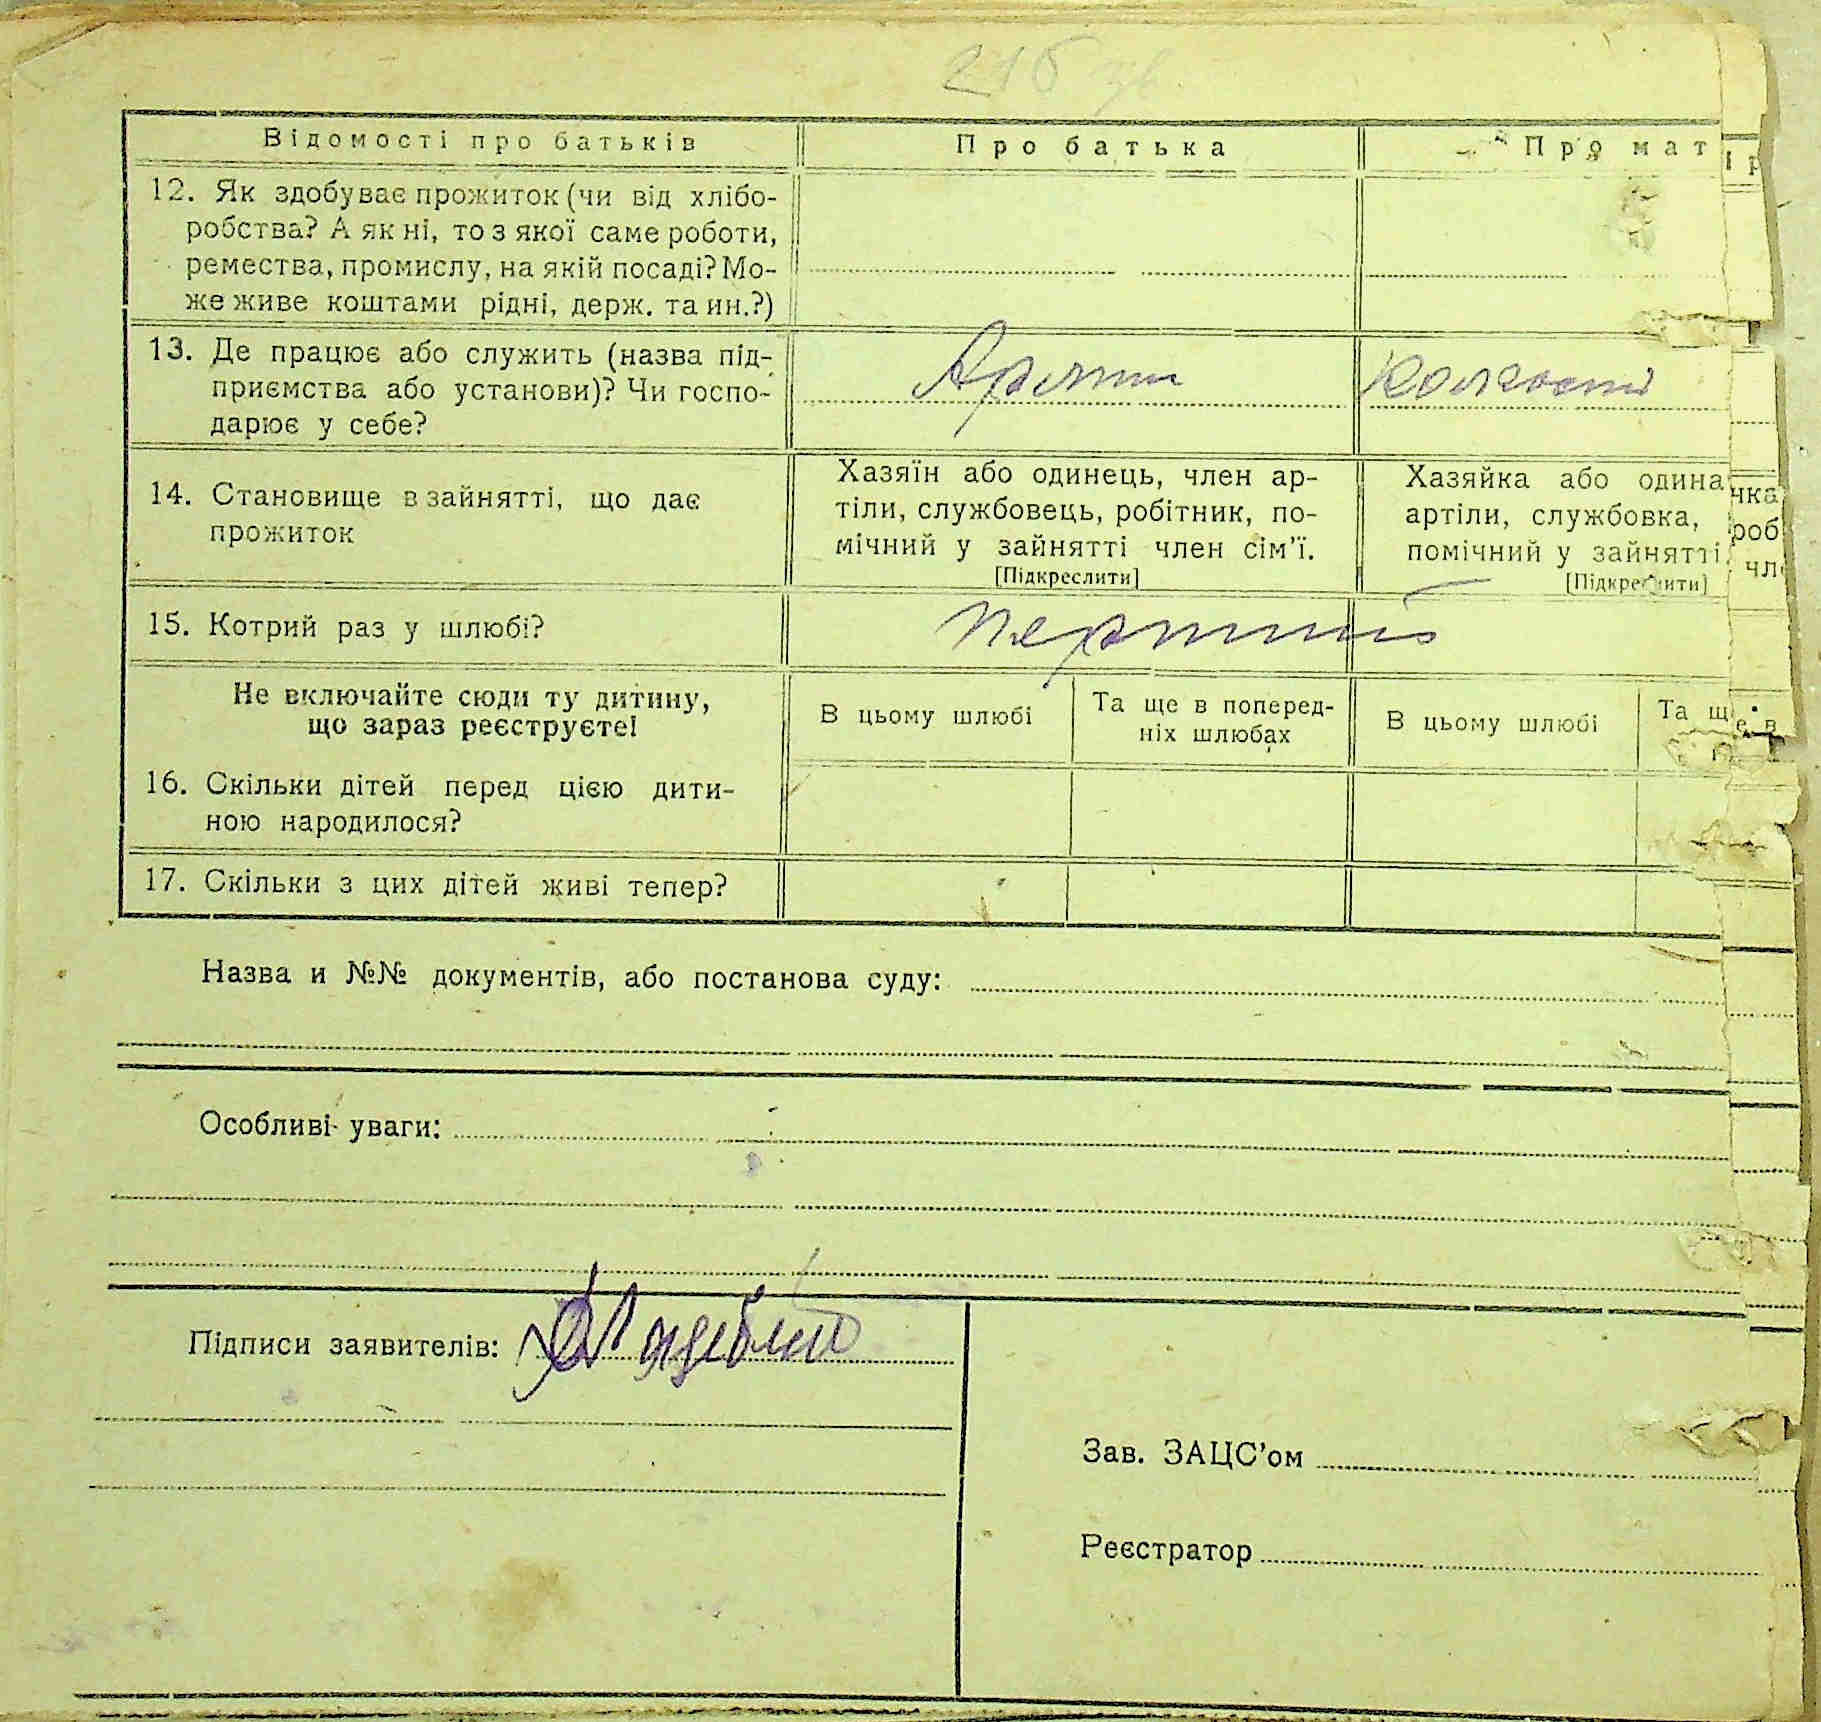 216 зв.
Відомості про батьків
Про батька
Про мат
12. Як здобуває прожиток (чи від хлібо-
робства? А як ні, то з якої саме роботи,
ремества, промислу, на якій посаді? Мо-
же живе коштами рідні, держ. та ин.?)
13. Де працює або служить (назва під-
приємства або установи)? Чи госпо-
дарює у себе?
колгоспі
14. Становище в зайнятті, що дає
прожиток
Хазяїн або одинець, член ар-
тіли, службовець, робітник, по-
мічний у зайнятті член сім'ї.
[Підкреслити]
Хазяйка або одина
артіли, службовка,
помічний у зайнятті
[Підкреслити]
15. Котрий раз у шлюбі?
перший
Не включайте сюди ту дитину,
що зараз реєструєте!
В цьому шлюбі
Та ще в поперед-
ніх шлюбах
В цьому шлюбі
Та ще в
16. Скільки дітей перед цією дити-
ною народилося?
17. Скільки з цих дітей живі тепер?
Назва и №№ документів, або постанова суду:
Особливі уваги:
Підписи заявителів:
Зав. ЗАЦС'ом
Реєстратор